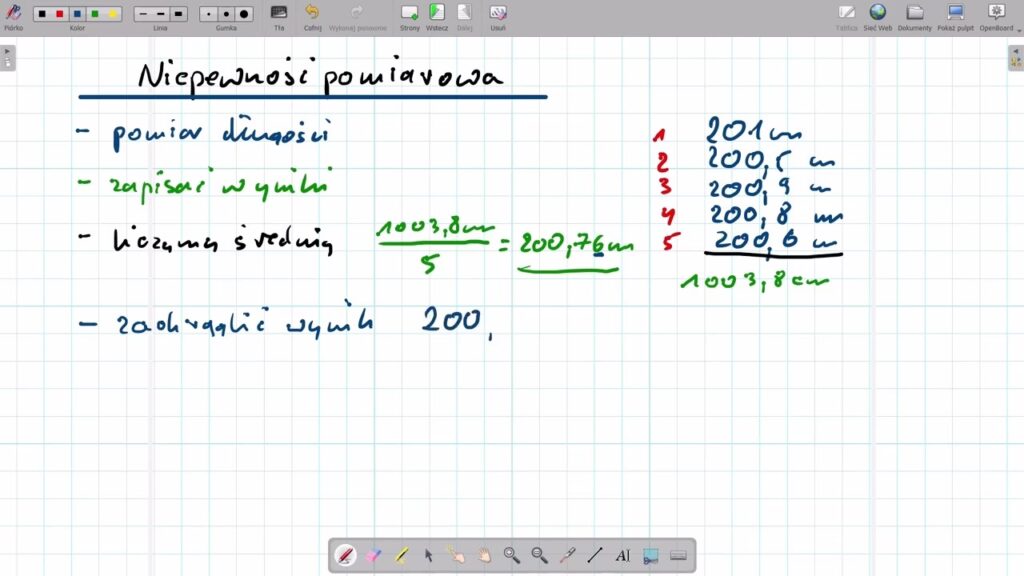 Piórko Kolor Linia Gumka Tła Cofnij Wykonaj ponownie Strony Wstecz Dalej Usuń Tablica Sieć Web Dokumenty Pokaż pulpit OpenBoard
Niepewność pomiarowa
- pomiar długości
- zapisać wyniki
- liczymy średnią 1003,8cm / 5 = 200,76cm
- zaokrąglić wynik 200,
1 201cm
2 200,5 cm
3 200,9 cm
4 200,8 cm
5 200,6 cm
1003,8cm